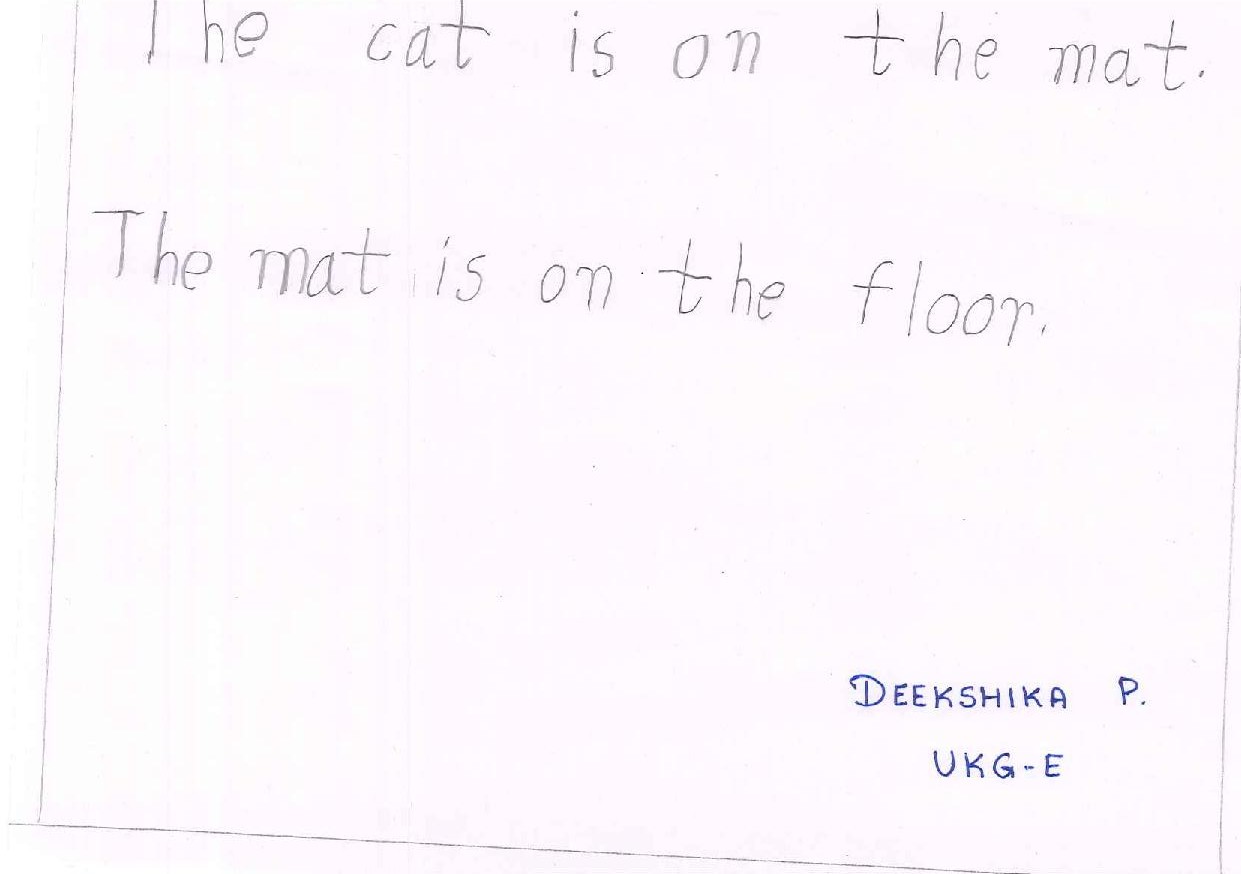 The cat is on the mat.
The mat is on the floor.
DEEKSHIKA P.
UKG-E